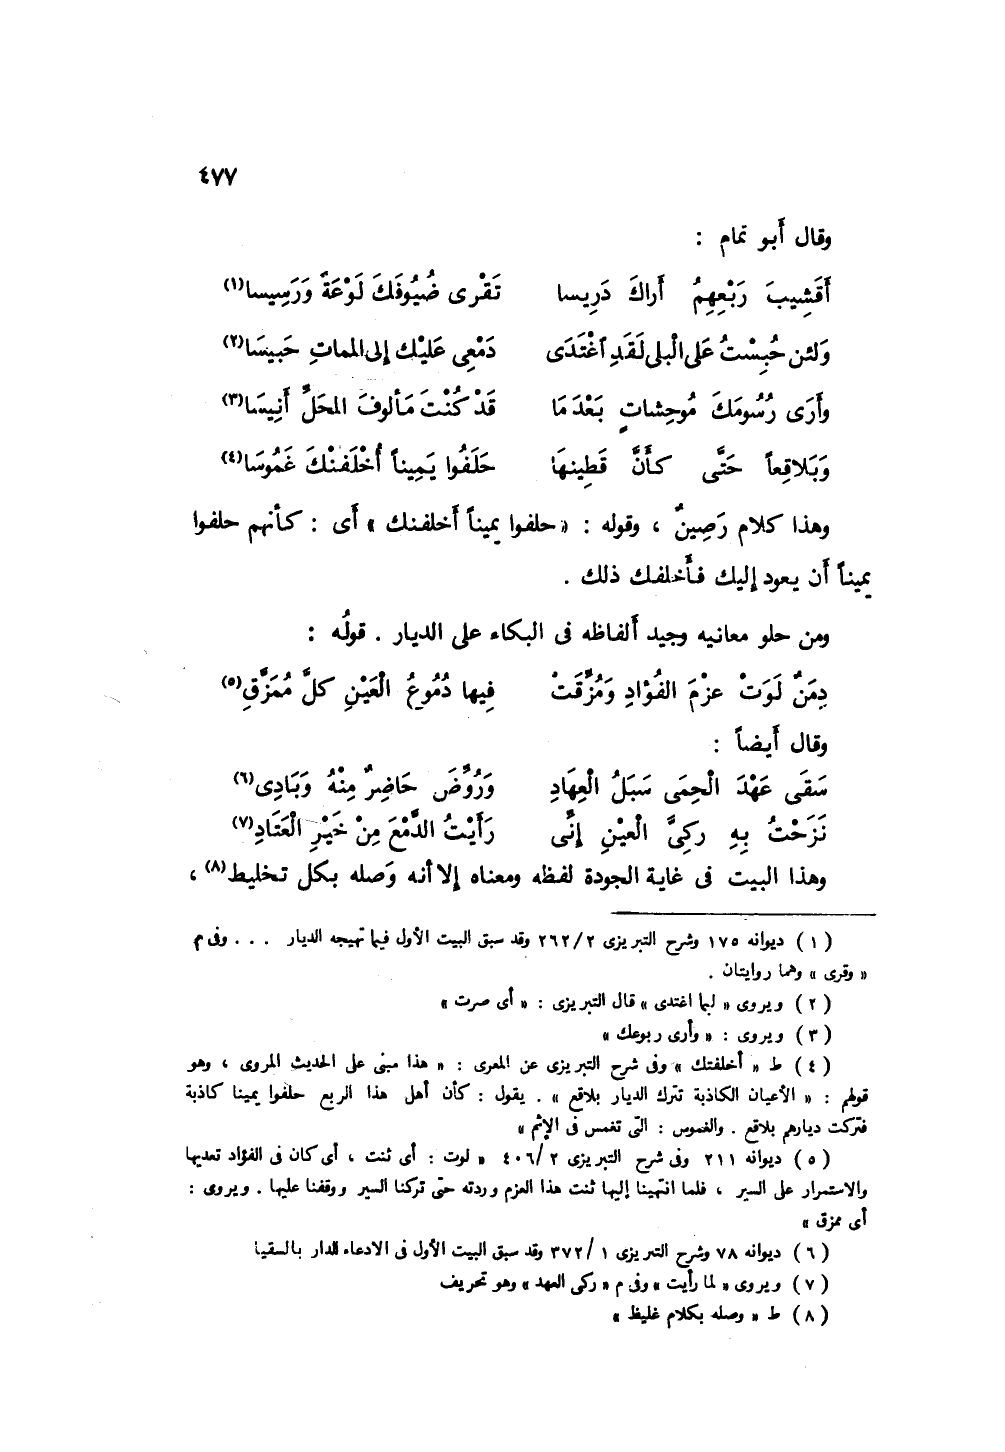 ٤٧٧
وقال أَبو تمام :
أَقَشِيبَ رَبْعِهِمُ أَراكَ دَرِيسا تَقْرى ضُيُوفَكَ لَوْعَةً وَرَسِيسا(١)
وَلئن حُبِسْتُ عَلى الْبلى لَقَدِ اغْتَدَى دَمْعِى عَليْك إلى المماتِ حَبيسَا(٢)
وأَرَى رُسُومَكَ مُوحِشاتٍ بَعْدَ مَا قَدْ كُنْتَ مَألوفَ المحَلِّ أَنِيسَا(٣)
وَبَلاقِعاً حَتَّى كأَنَّ قَطِينهَا حَلَفُوا يَمِيناً أَخْلَفَنْكَ غَمُوسَا(٤)
وهذا كلام رَصِينٌ ، وقوله : « حلفوا يميناً أخلفنك » أَى : كأنهم حلفوا
يميناً أَن يعود إليك فأَخلفك ذلك .
ومن حلو معانيه وجيد أَلفاظه فى البكاء على الديار . قولُه :
دِمَنٌ لَوَتْ عزْمَ الفُؤادِ وَمُزِّقَتْ فِيها دُمُوعُ الْعَيْنِ كلَّ مُمَزَّقِ(٥)
وقال أَيضاً :
سَقَى عَهْدَ الْحِمَى سَبَلُ الْعِهَادِ وَرُوِّضَ حَاضِرٌ مِنْهُ وَبَادِى(٦)
نَزَحْتُ بِهِ رَكِىَّ الْعيْنِ إنِّى رَأَيْتُ الدَّمْعَ مِنْ خَيْرِ الْعَتَادِ(٧)
وهذا البيت فى غاية الجودة لفظه ومعناه إلا أنه وَصله بكل تخليط(٨) ،
(١) ديوانه ١٧٥ وشرح التبريزى ٢٦٢/٢ وقد سبق البيت الأول فيما تهيجه الديار . . . وفى م
« وقرى » وهما روايتان .
(٢) ويروى « لبما اغتدى » قال التبريزى : « أى صرت »
(٣) ويروى : « وأرى ربوعك »
(٤) ط « أخلفتك » وفى شرح التبريزى عن المعرى : « هذا مبنى على الحديث المروى ، وهو
قولهم : « الأعيان الكاذبة تترك الديار بلاقع » . يقول : كأن أهل هذا الربع حلفوا يمينا كاذبة
فتركت ديارهم بلاقع . والغموس : التى تغمس فى الإثم »
(٥) ديوانه ٢١١ وفى شرح التبريزى ٤٠٦/٢ « لوت : أى ثنت ، أى كان فى الفؤاد تعديها
والاستمرار على السير ، فلما انتهينا إليها ثنت هذا العزم وردته حتى تركنا السير ووقفنا عليها . ويروى :
أى ممزق »
(٦) ديوانه ٧٨ وشرح التبريزى ٣٧٢/١ وقد سبق البيت الأول فى الادعاء للدار بالسقيا
(٧) ويروى « لما رأيت » وفى م « ركى العهد » وهو تحريف
(٨) ط « وصله بكلام غليظ »